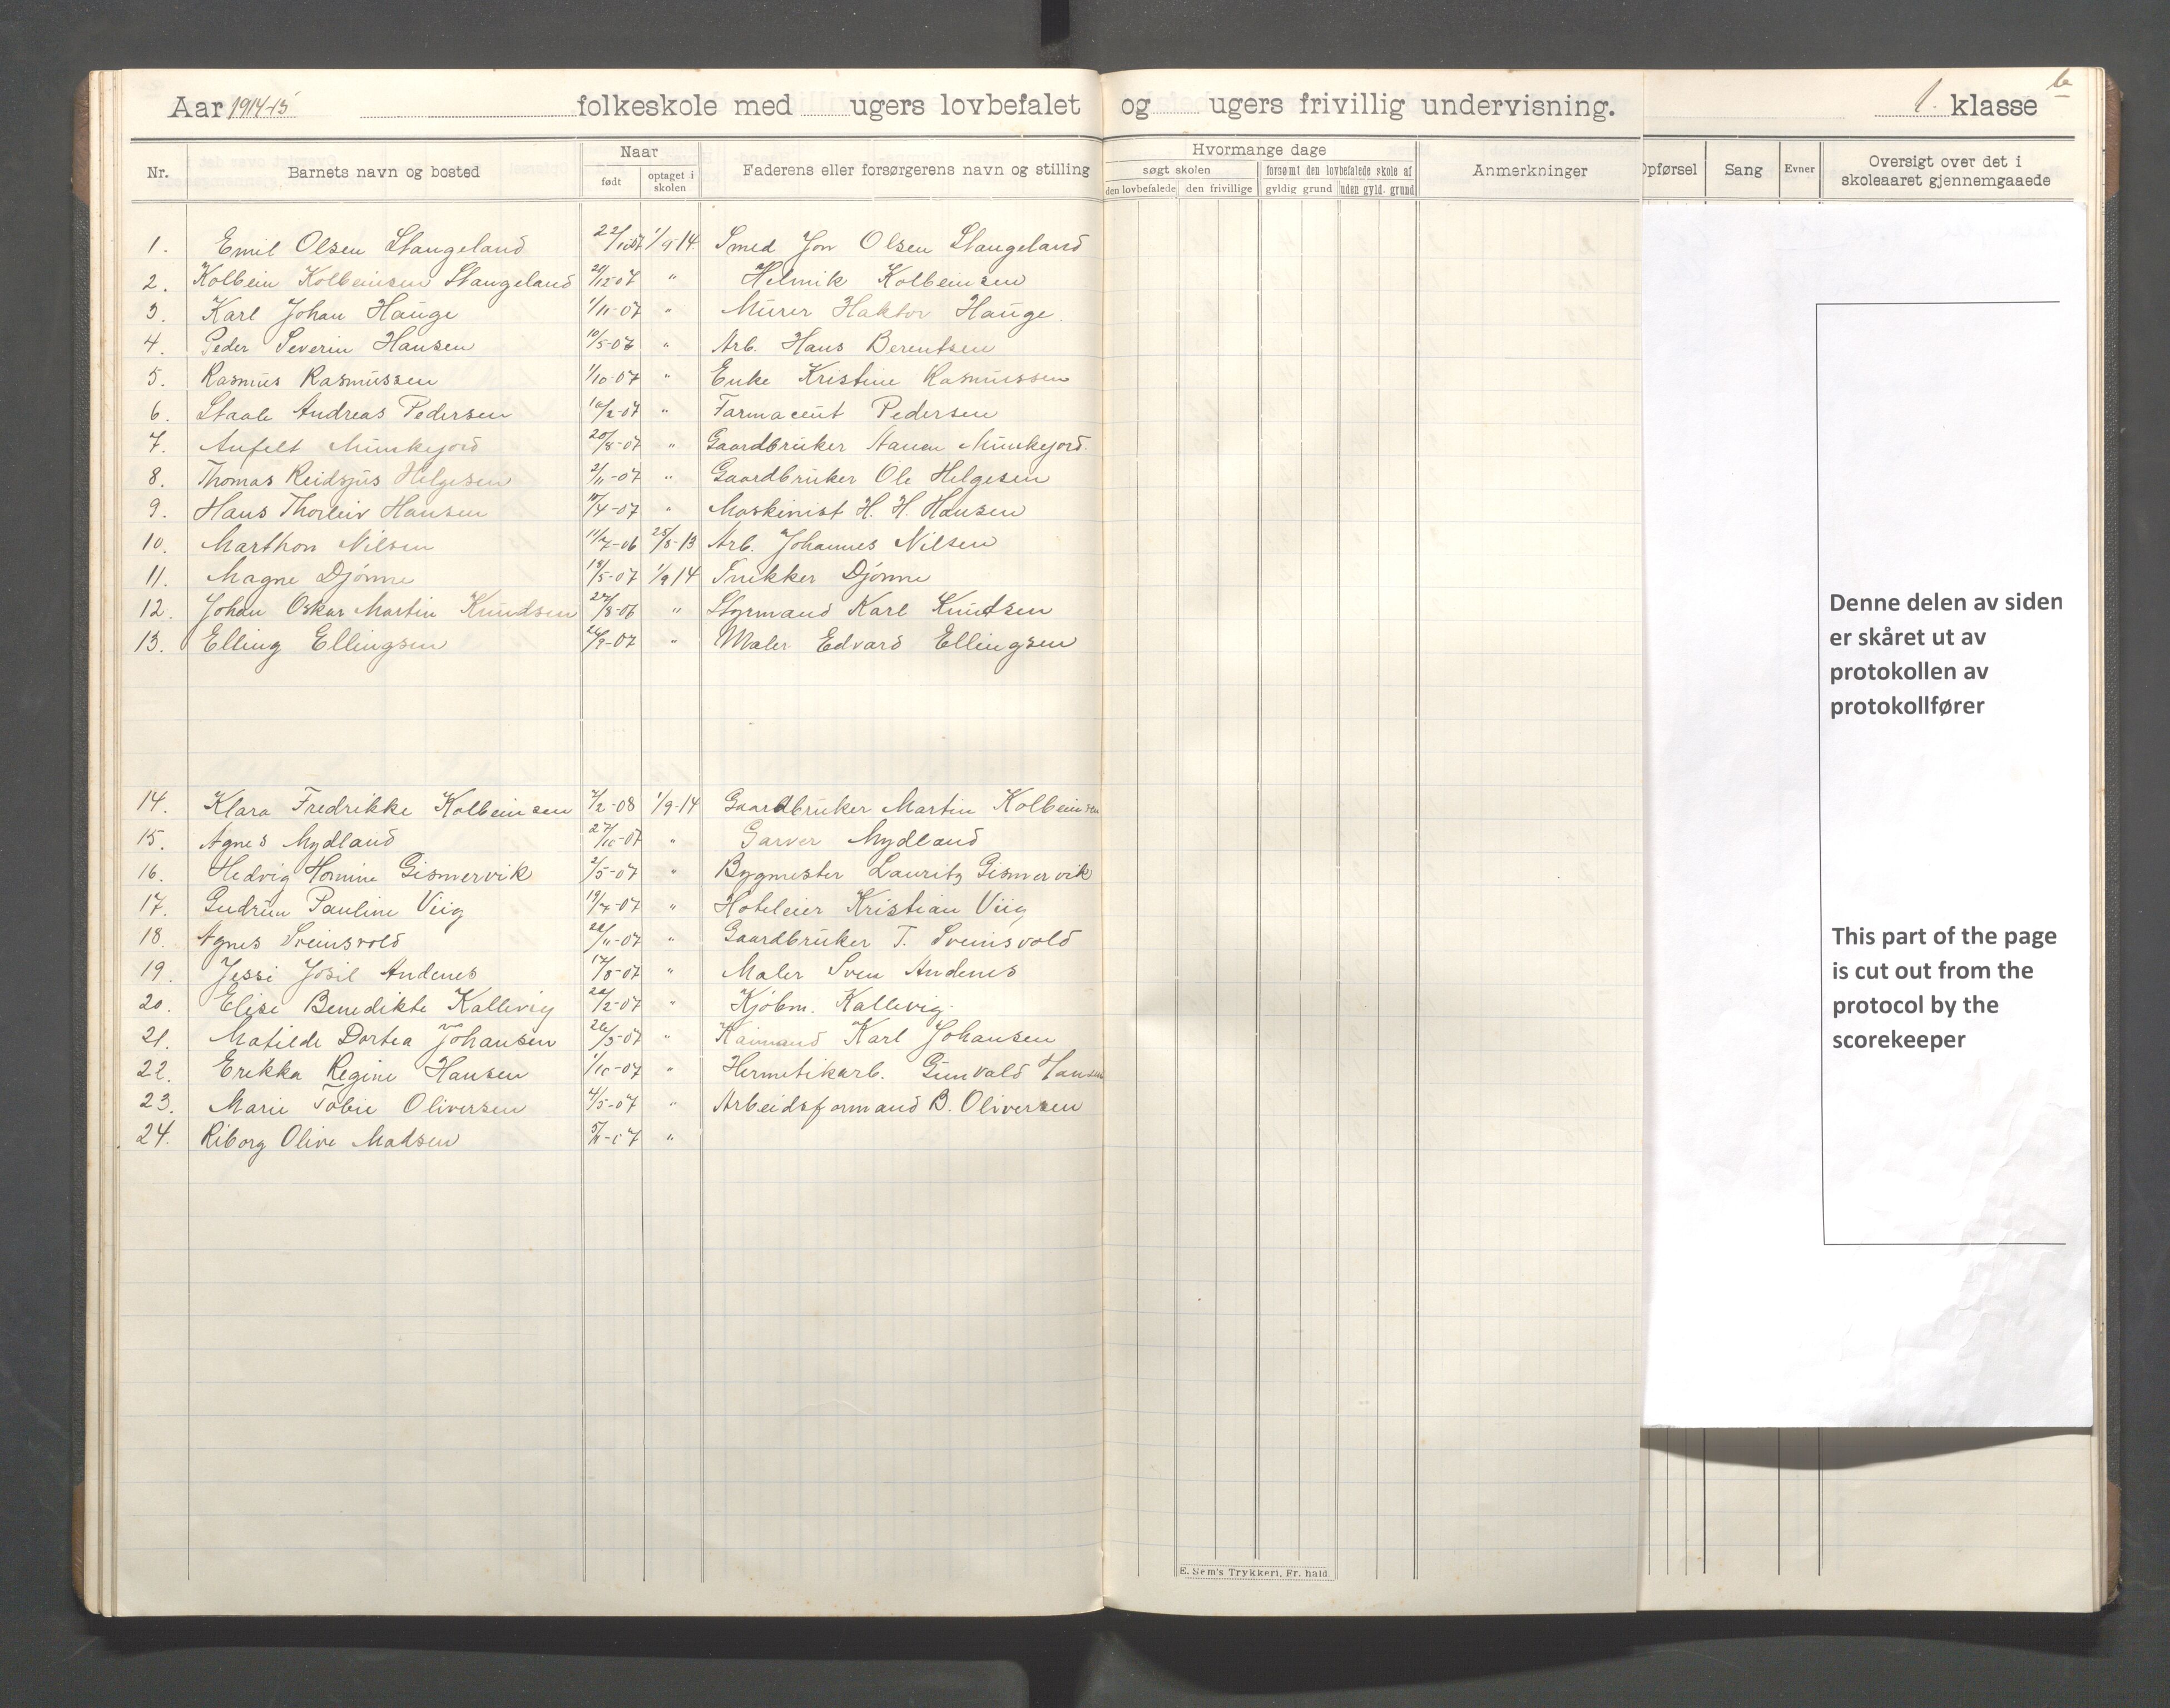 Aar 1914-15 folkeskole med ugers lovbefalet og ugers frivillig undervisning. 1. klasse b
Nr. Barnets navn og bosted Naar født optaget i skolen Faderens eller forsørgerens navn og stilling Hvormange dage søgt skolen den lovbefalede den frivillige forsømt den lovbefalede skole af gyldig grund uden gyld. grund Anmerkninger Opførsel Sang Evner Oversigt over det i skoleaaret gjennemgaaede
1. Emil Olsen Stangeland 1/9 14 Smed Jon Olsen Stangeland
2. Kolbein Kolbeinsen Stangeland " Helmik Kolbeinsen
3. Karl Johan Hauge 1/11-07 " Murer Haktor Hauge
4. Peder Severin Hansen 10/5-07 " Arb. Hans Berentsen
5. Rasmus Rasmussen 1/10-07 " Enke Kristine Rasmussen
6. Staale Andreas Pedersen 10/2-07 " Farmaceut Pedersen
7. Anfelt Munkejord 20/8-07 " Gaardbruker Munkejord.
8. Thomas Reidsjus Helgesen 2/11-07 " Gaardbruker Ole Helgesen
9. Hans Thorleiv Hansen 17/4-07 " Maskinist H. H. Hansen
10. Marthon Nilsen 11/7-06 25/8-13 Arb. Johannes Nilsen
11. Magne Djönne 19/5-07 1/9 14 Snekker Djönne
12. Johan Oskar Martin Knudsen 27/8-06 " Styrmand Karl Knutsen
13. Elling Ellingsen 24/9-07 " Maler Edvard Ellingsen
14. Klara Fredrikke Kolbeinsen 7/2-08 1/9-14 Gaardbruker Martin Kolbeinsen
15. Agnes Mydland 27/10-07 " Garver Mydland
16. Hedvig Homine Gismervik 2/5-07 " Bygmester Lauritz Gismervik
17. Gudrun Pauline Viig 19/7-07 " Hoteleier Kristian Viig
18. Agnes Sveinsvold 22/11-07 " Gaardbruker T. Sveinsvold
19. Jessi Josil Andenes 17/8-07 " Maler Sven Andenes
20. Elise Benedikte Kallevig 22/2-07 " Kjöbm. Kallevig.
21. Matilde Dortea Johansen 26/5-07 " Karl Johansen
22. Erikka Regine Hansen 1/10-07 " Hermetikarb. Gunvald Hansen
23. Marie Tobie Oliversen 4/5-07 " Arbeidsformand B. Oliversen
24. Riborg Olive Madsen "
Denne delen av siden
er skåret ut av
protokollen av
protokollfører
This part of the page
is cut out from the
protocol by the
scorekeeper
E. Sem's Trykkeri, Fr. hald.